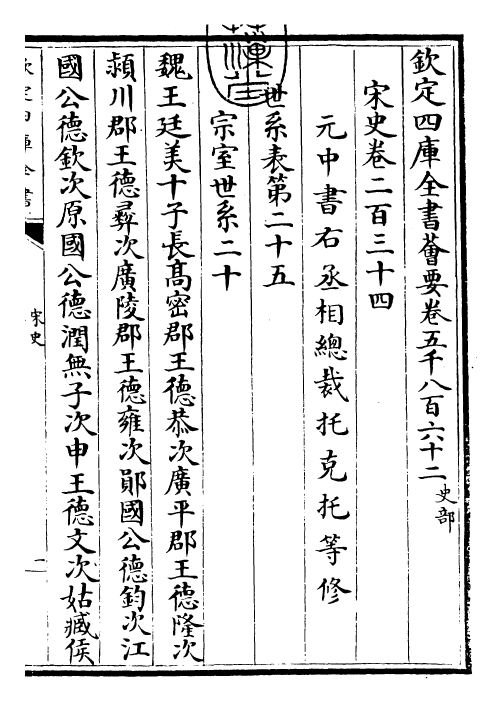 欽定四庫全書薈要卷五千八百六十二 史部
宋史卷二百三十四
元中書右丞相總裁托克托等修
世系表第二十五
宗室世系二十
魏王廷美十子長高密郡王德恭次廣平郡王德隆次
潁川郡王德彝次廣陵郡王德雍次鄖國公德鈞次江
國公德欽次原國公德潤無子次申王德文次姑臧侯
欽定四庫全書
宋史